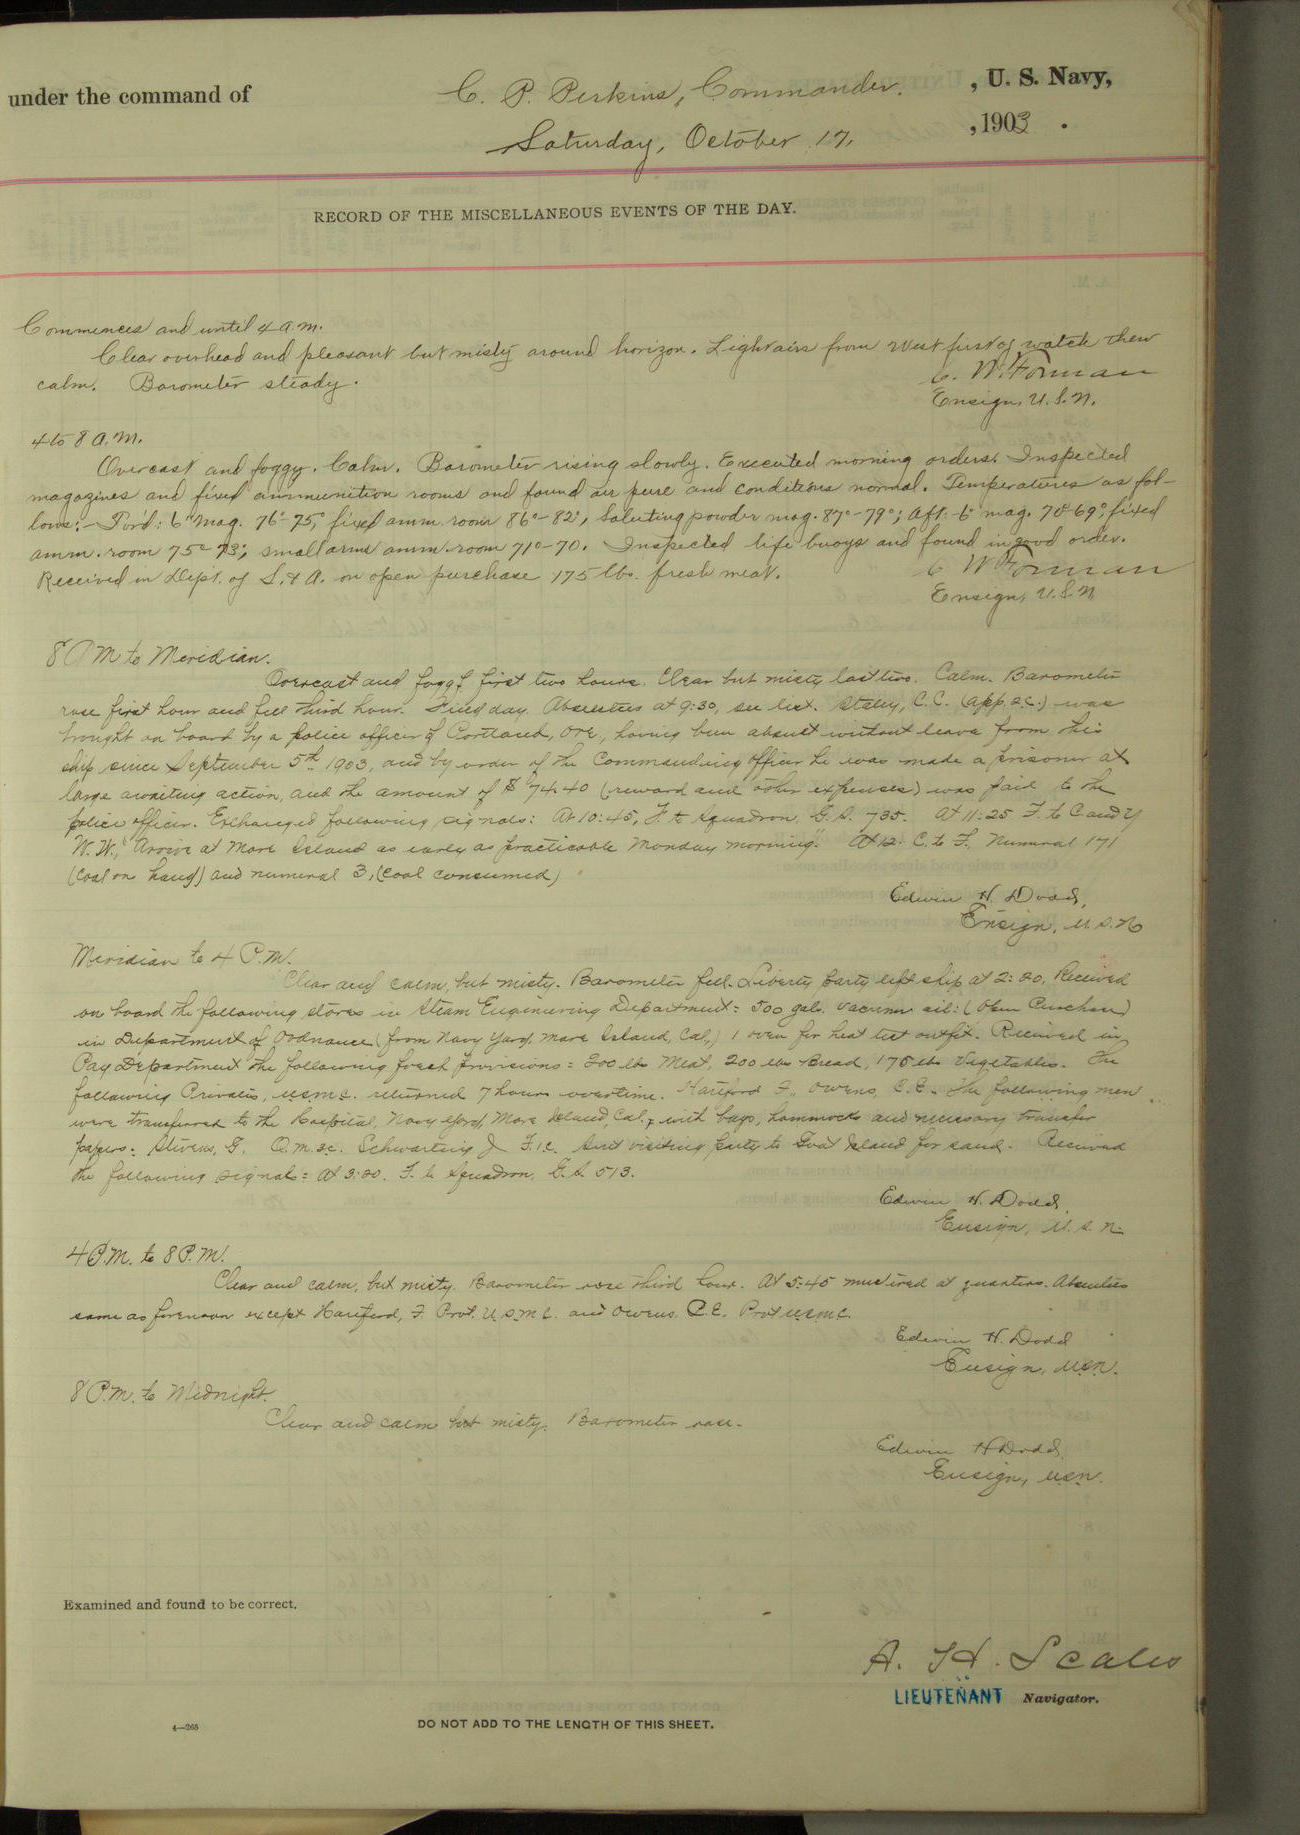 under the command of C. P. Perkins, Commander. , U. S. Navy,
Saturday, October 17, , 1903 .
RECORD OF THE MISCELLANEOUS EVENTS OF THE DAY.
Commences and until 4 a.m.
Clear overhead and pleasant but misty around horizon. Light airs from West first of watch then
calm. Barometer steady.
C. W. Forman
Ensign, U.S.N.
4 to 8 A.M.
Overcast and foggy. Calm. Barometer rising slowly. Executed morning orders. Inspected
magazines and fixed ammunition rooms and found air pure and conditions normal. Temperatures as fol-
lows:- For'd: 6" mag. 76°-75°, fixed amm. room 86°-82°, Saluting powder mag. 87°-79°; Aft: 6" mag. 70°-69°, fixed
amm. room 75°-73°, small arms amm. room 71°-70. Inspected life buoys and found in good order.
Received in Dept. of S. & A. on open purchase 175 lbs. fresh meat.
C W Forman
Ensign, U.S.N.
8 AM to Meridian.
Overcast and foggy first two hours. Clear but misty last two. Calm. Barometer
rose first hour and fell third hour. Field day. Absentees at 9:30, see list. C.C. (App. 2.c.) was
brought on board by a police officer of Portland, Ore, having been absent without leave from this
ship since September 5th 1903, and by order of the Commanding Officer he was made a prisoner at
large awaiting action, and the amount of $74.40 (reward and other expenses) was paid to the
police officer. Exchanged following signals: At 10:45, F. to Squadron, G.S. 735. At 11:25 F. to C and Y
W.W., "Arrive at Mare Island as early as practicable Monday morning." At 12: C. to F. Numeral 171
(Coal on hand) and numeral 3, (Coal consumed)
Edwin H. Dodd,
Ensign, U.S.N
Meridian to 4 P.M.
Clear and calm, but misty. Barometer fell. Liberty party left ship at 2:20. Received
on board the following stores in Steam Engineering Department: 500 gals. vacuum oil: (Open Purchase)
in Department of Ordnance (from Navy Yard, Mare Island, Cal,) 1 oven for heat test outfit. Received in
Pay Department the following fresh provisions: 200 lbs Meat, 200 lbs Bread, 175 lbs Vegetables. The
following Privates, U.S.M.C. returned 7 hours overtime. Hartford F., Owens, C.E. The following men
were transferred to the Hospital, Navy Yard, Mare Island, Cal., with bags, hammocks and necessary transfer
papers: Stevens, G. Q.M.3c. J F.1.c. Sent visiting party to Goat Island for sand. Received
the following signals: At 3:20. F. to Squadron, G.S. 513.
Edwin H. Dodd,
Ensign, U.S.N.
4 P.M. to 8 P.M.
Clear and calm, but misty. Barometer rose third hour. At 5:45 mustered at quarters. Absentees
same as forenoon except Hartford, F. Prvt. U.S.M.C. and Owens, C.E. Prvt U.S.M.C.
Edwin H. Dodd
Ensign, U.S.N.
8 P.M. to Midnight.
Clear and calm but misty. Barometer rose.
Edwin H Dodd,
Ensign, U.S.N.
Examined and found to be correct.
A. H. Scales
LIEUTENANT Navigator.
4—265
DO NOT ADD TO THE LENGTH OF THIS SHEET.